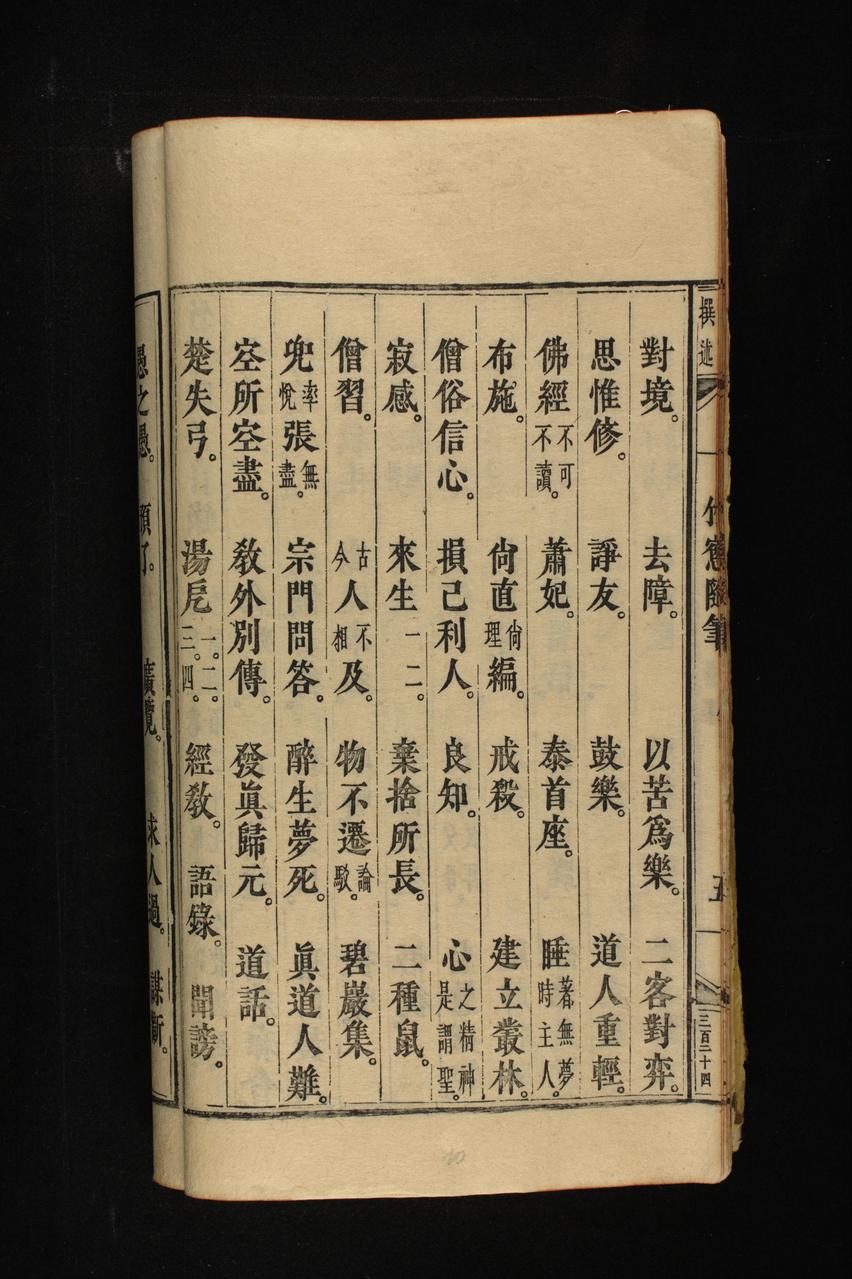 撰述
竹窻隨筆
五
三百三十四
對境。 去障。 以苦爲樂。 二客對弈。
思惟修。 諍友。 鼓樂。 道人重輕。
佛經不可不讀。 蕭妃。 泰首座。 睡著無夢時主人。
布施。 尙直尙理編。 戒殺。 建立叢林。
僧俗信心。 損己利人。 良知。 心之精神是謂聖。
寂感。 來生一二。 棄捨所長。 二種鼠。
僧習。 古今人不相及。 物不遷論駁。 碧巖集。
兜率悅張無盡。 宗門問答。 醉生夢死。 眞道人難。
空所空盡。 敎外別傳。 發眞歸元。 道話。
楚失弓。 湯卮一。二。三。四。 經敎。 語錄。 聞謗。
愚之愚。 預了。 廣覽。 求人過。 謀斷。